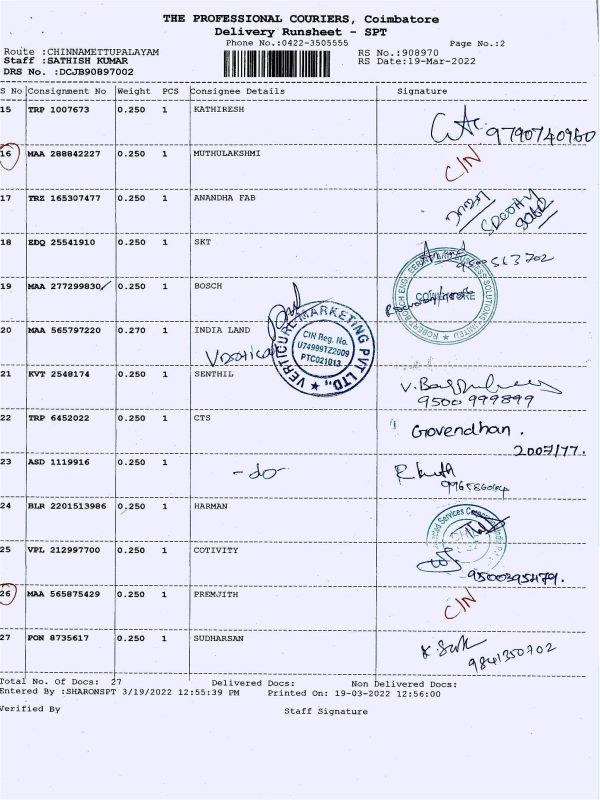 THE PROFESSIONAL COURIERS, Coimbatore
Delivery Runsheet - SPT
Phone No.:0422-3505555 Page No.:2
Route :CHINNAMETTUPALAYAM RS No.:908970
Staff :SATHISH KUMAR RS Date:19-Mar-2022
DRS No. :DCJB90897002
S No Consignment No Weight PCS Consignee Details Signature
15 TRP 1007673 0.250 1 KATHIRESH
9790740960
16 MAA 288842227 0.250 1 MUTHULAKSHMI CIN
17 TRZ 165307477 0.250 1 ANANDHA FAB
18 EDQ 25541910 0.250 1 SKT
9500563702
19 MAA 277299830 0.250 1 BOSCH
COIMBATORE
20 MAA 565797220 0.270 1 INDIA LAND
VERTICURE MARKETING PVT LTD.,
CIN Reg. No.
U74999TZ2009
PTC021013
21 KVT 2548174 0.250 1 SENTHIL
9500999899
22 TRP 6452022 0.250 1 CTS Govendhan.
2007177.
23 ASD 1119916 0.250 1 -do-
24 BLR 2201513986 0.250 1 HARMAN
25 VPL 212997700 0.250 1 COTIVITY
9500395479.
26 MAA 565875429 0.250 1 PREMJITH CIN
27 PON 8735617 0.250 1 SUDHARSAN
9841350702
Total No. Of Docs: 27 Delivered Docs: Non Delivered Docs:
Entered By :SHARONSPT 3/19/2022 12:55:39 PM Printed On: 19-03-2022 12:56:00
Verified By Staff Signature